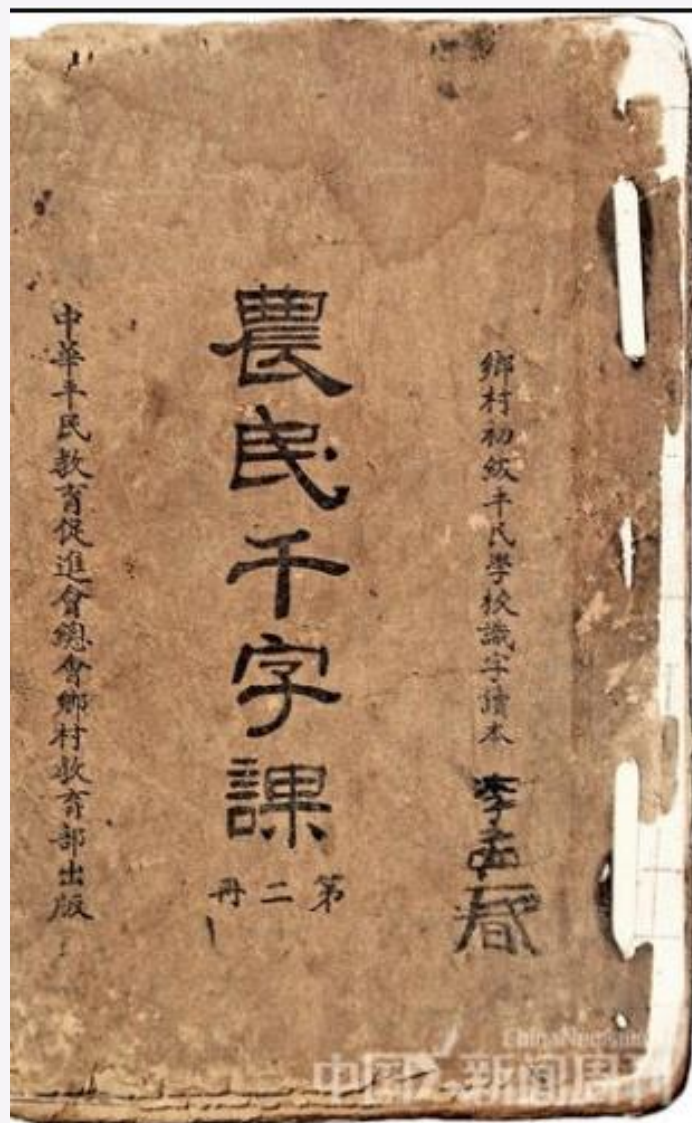 鄉村初級平民學校識字讀本
農民千字課
第二冊
中華平民教育促進會總會鄉村教育部出版
ChinaNewsweek
中国新闻周刊